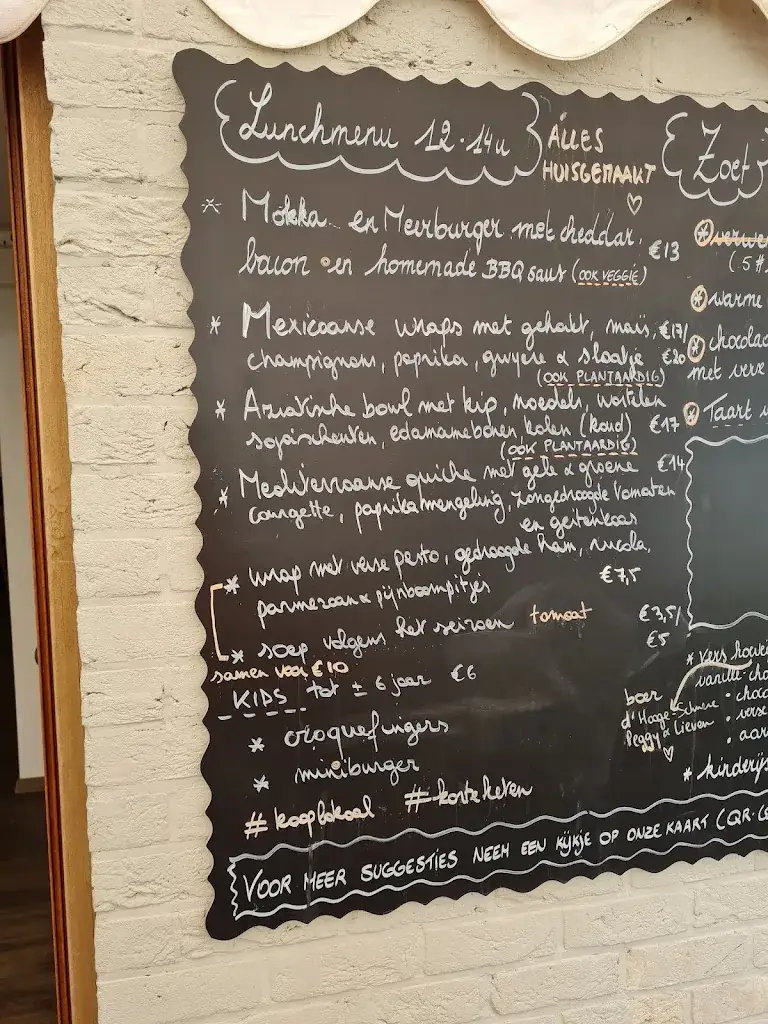 Lunchmenu 12-14u
ALLES
HUISGEMAAKT
* Mokka en Meerburger met cheddar,
bacon en homemade BBQ saus (OOK VEGGIE) €13
* Mexicaanse wraps met gehakt, mais, €17/
champignons, paprika, gruyère & slaatje €20
(OOK PLANTAARDIG)
* Aziatische bowl met kip, noedels, wortelen
sojascheuten, edamamebonen kolen (koud) €17
(OOK PLANTAARDIG)
* Mediterraanse quiche met gele & groene €14
courgette, paprikamengeling, zongedroogde tomaten
en geitenkaas
* wrap met verse pesto, gedroogde ham, rucola,
parmezaan & pijnboompitjes €7,5
* soep volgens het seizoen tomaat €3,5/
€5
samen voor €10
KIDS tot ± 6 jaar €6
* croquefingers
* miniburger
#kooplokaal #korteketen
VOOR MEER SUGGESTIES NEEM EEN KIJKJE OP ONZE KAART (QR-
Zoet
(5
* warme
* chocolad
met verse
* Taart
* vers
vanille
boer
d'Hooge-Schuure
Peggy & Lieven
* kinderijs